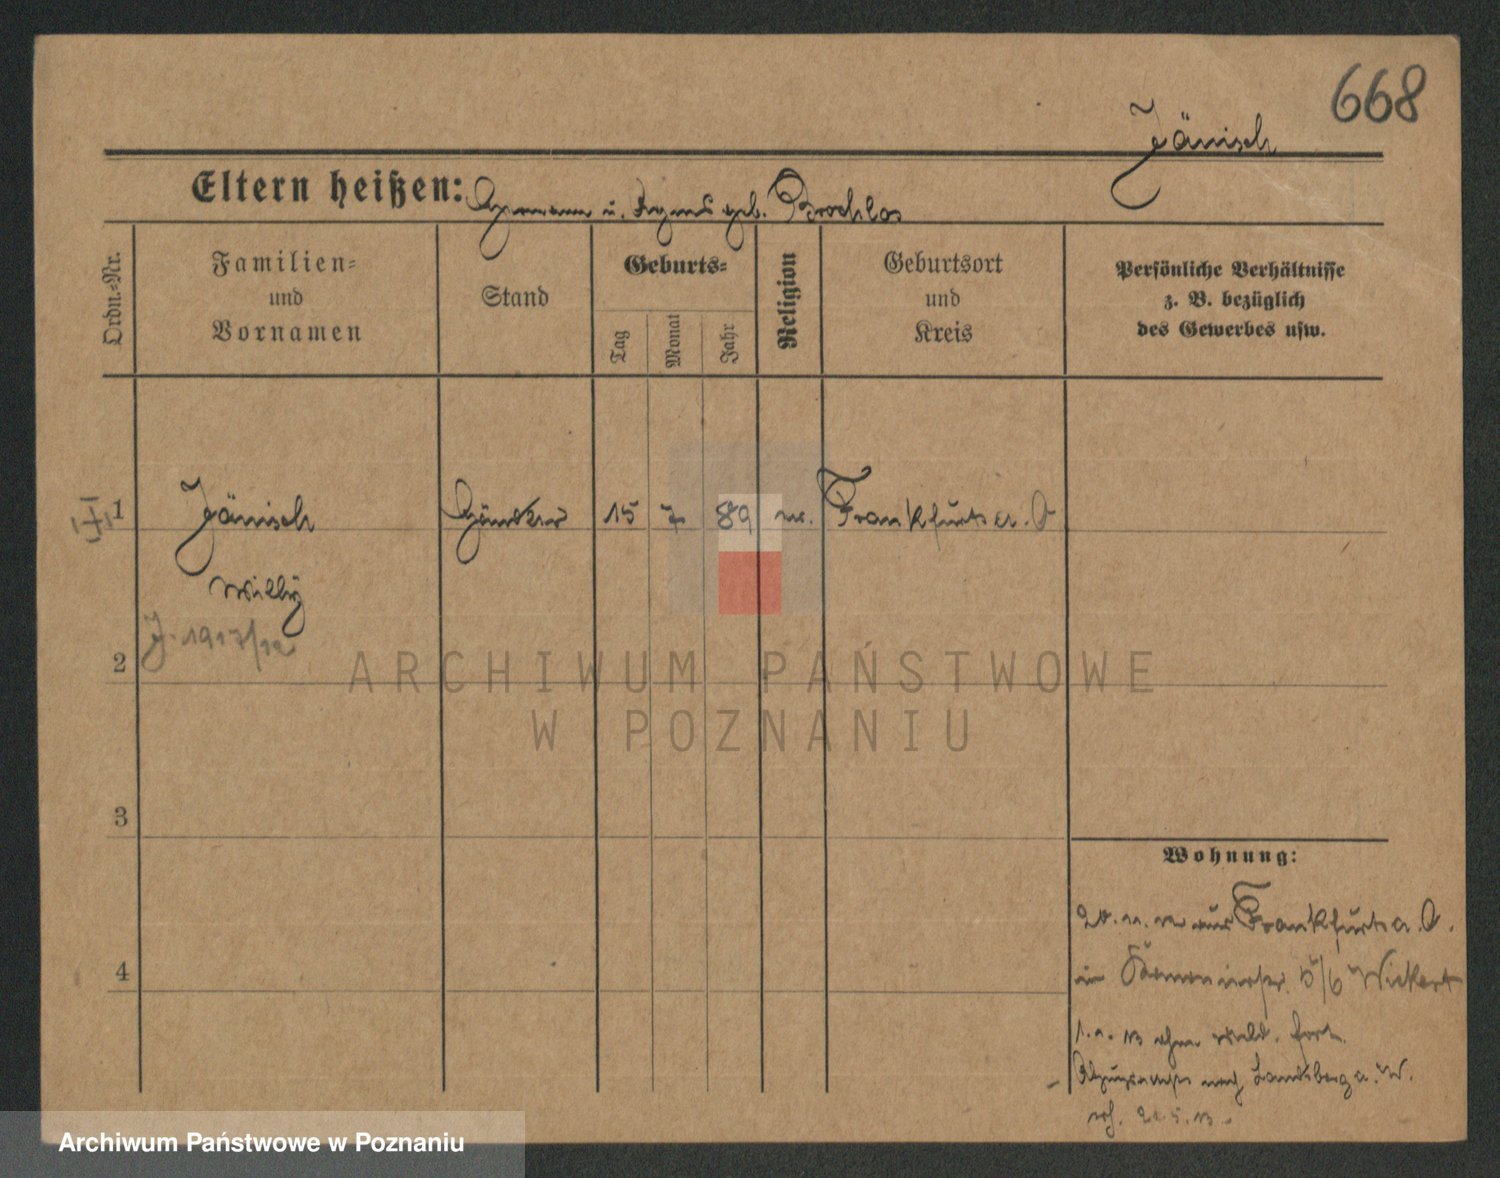 668
Jänisch
Eltern heißen: Hermann u. Agnes geb.
Ordn.-Nr.
Familien-
und
Vornamen
Stand
Geburts-
Tag
Monat
Jahr
Religion
Geburtsort
und
Kreis
Persönliche Verhältnisse
z. B. bezüglich
des Gewerbes usw.
1 Jänisch 15 7 89 ev. Frankfurt a. O
Willy
J. 1917/12
2
3
4
ARCHIWUM PAŃSTWOWE
W POZNANIU
Wohnung:
aus Frankfurt a. O.
5/6 Wickert
1. 13 ohne Meld. fort.
nach Landsberg a. W.
5. 13.
Archiwum Państwowe w Poznaniu